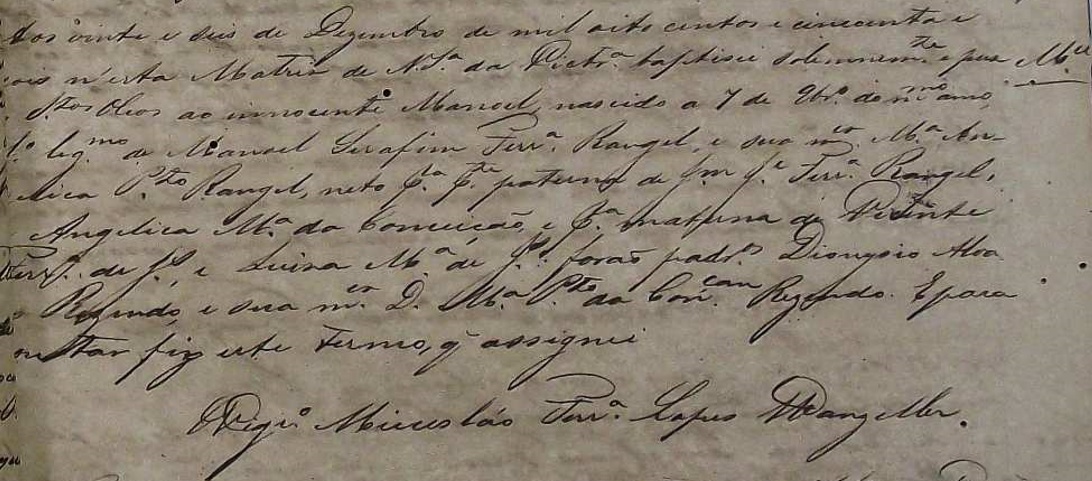 Aos vinte e seis de Dezembro de mil oito centos e cincoenta e
ois n'esta Matriz de N. S.ª da Victr.ª baptisei solemnem.te e puz
S.tos Oleos ao innocente Manoel, nascido a 7 de 9br.º do m.mo anno,
f.º leg.mo de Manoel Serafim Ferr.ª Rangel, e sua m.er M.ª An-
elica P.to Rangel, neto p.ª p.te paterna de Jm J.e Ferr.ª Rangel,
Angelica M.ª da Conceição, e p.ª materna de Vicente
Ferr.ª de J.s e Luisa M.ª de J.s forão padr.os Dionysio
Rozendo, e sua m.er D. M.ª P.to da Con.cam Rozendo. E para
onstar fiz este termo, q' assignei
Vigr.º Miceslão Ferr.ª Lopes Wanzeller.